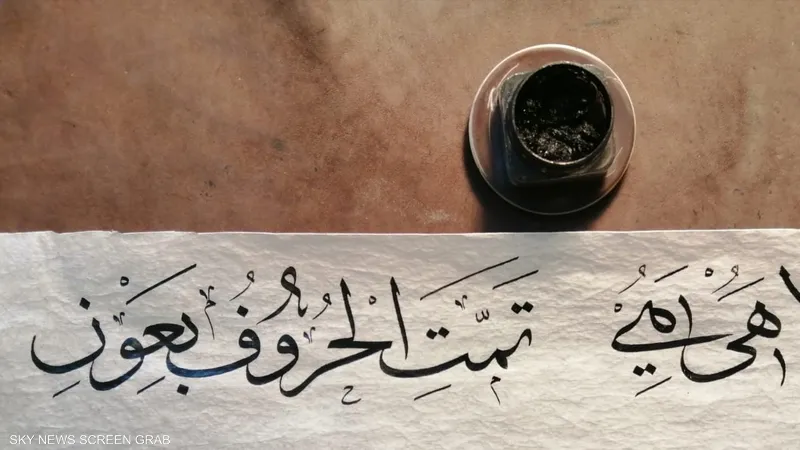 هى امي تَمَّتِ الْحُرُوفُ بِعَوْنِ
SKY NEWS SCREEN GRAB